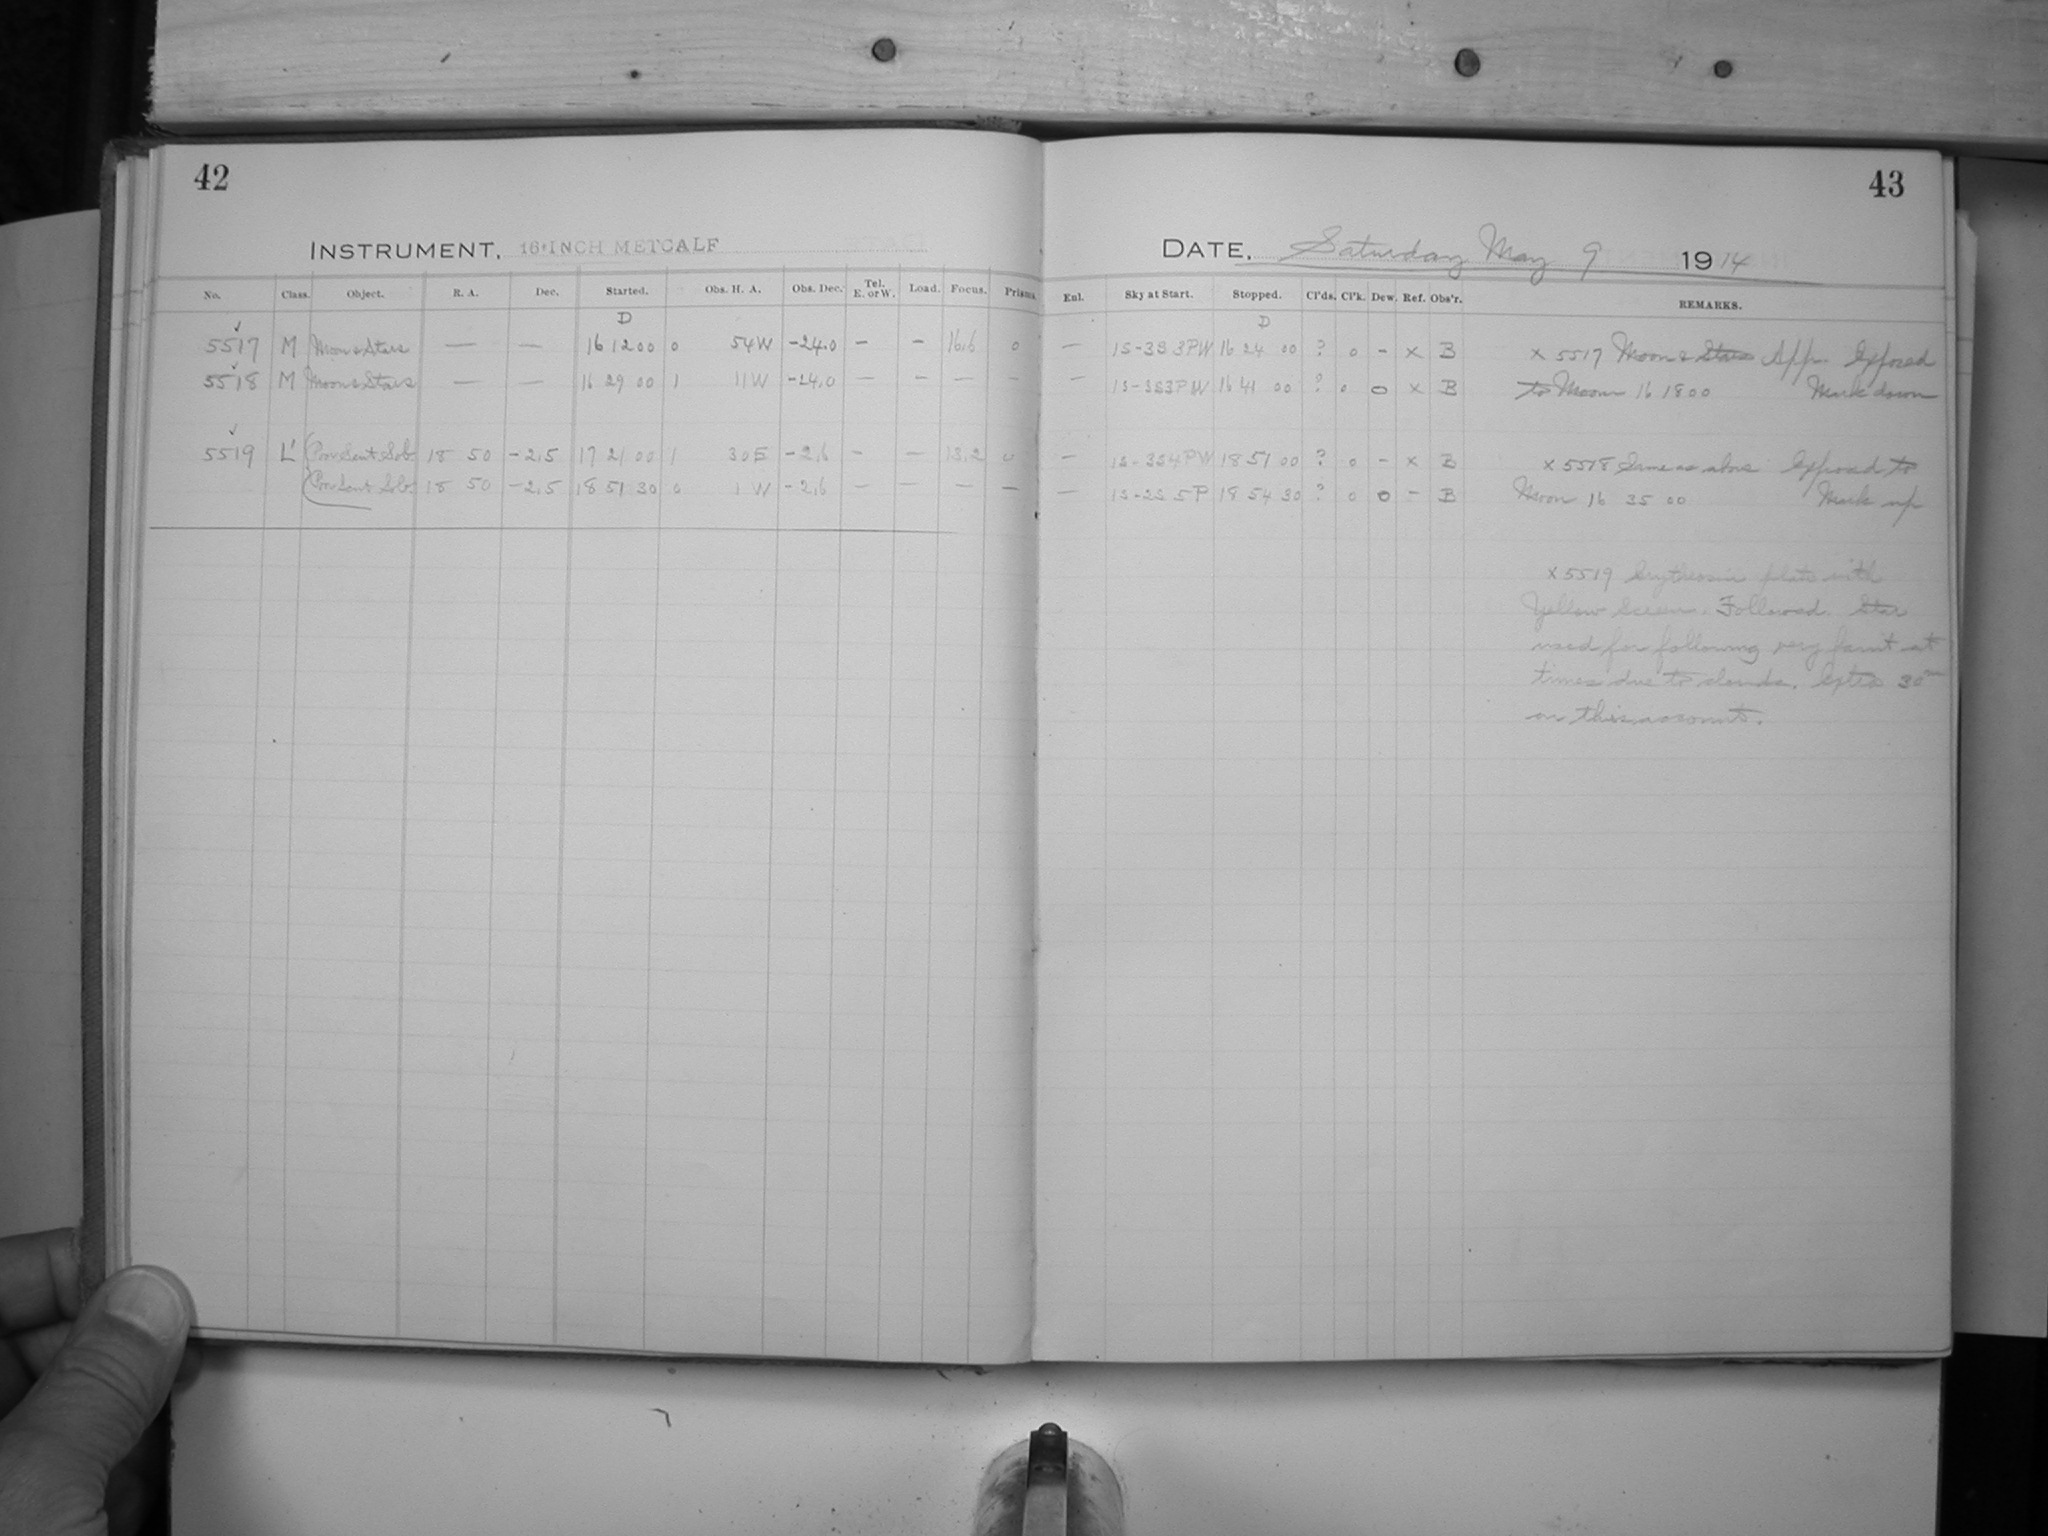 42
43
INSTRUMENT, 16-INCH METCALF
DATE, Saturday May 9 1914
No. Class. Object. R. A. Dec. Started. Obs. H. A. Obs. Dec. Tel. E. or W. Load. Focus. Prisms. Enl. Sky at Start. Stopped. Cl'ds. Cl'k. Dew. Ref. Obs'r. REMARKS.
D D
5517 M Moon & Stars — — 16 12 00 0 54 W -24.0 — — 16.6 0 — 1S-3S 3PW 16 24 00 ? 0 - x B x 5517 Moon & Stars App. Exposed
5518 M Moon & Stars — — 16 29 00 1 11 W -24.0 — — — — 1S-3S3PW 16 41 00 ? 0 0 x B to Moon 16 18 00 Mark down
5519 L' 18 50 -2.5 17 21 00 1 30 E -2.6 — — 13.2 0 — 1S-3S4PW 18 51 00 ? 0 - x B x 5518 Same as above Exposed to
18 50 -2.5 18 51 30 0 1 W -2.6 — — — — — 1S-2S 5P 18 54 30 ? 0 0 - B Moon 16 35 00 Mark up
x 5519 Erythrosin plate with
Yellow Screen. Followed. Star
used for following very faint at
times due to clouds. Extra 30m
on this account.